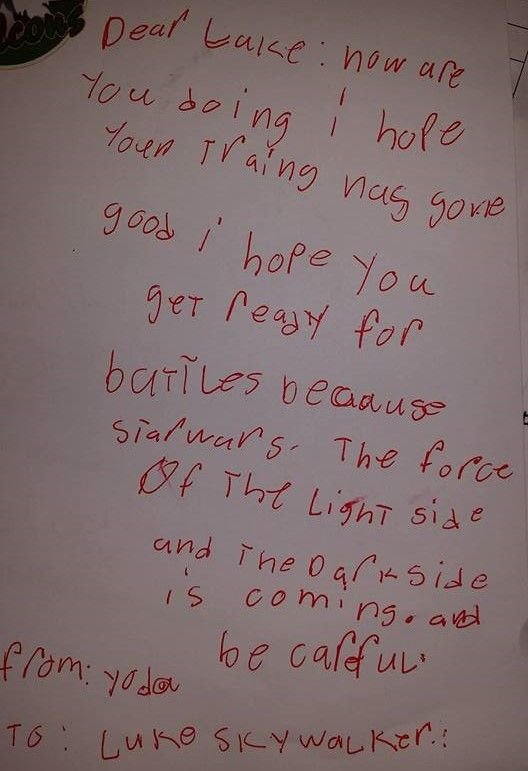 cons
Dear Luke: how are
you doing i hope
Your Traing has gone
good i hope you
get ready for
battles becaause
starwars. The force
Of The Light side
and The Dark side
is coming. and
be careful.
from: yoda
To: Luke skywalker.: